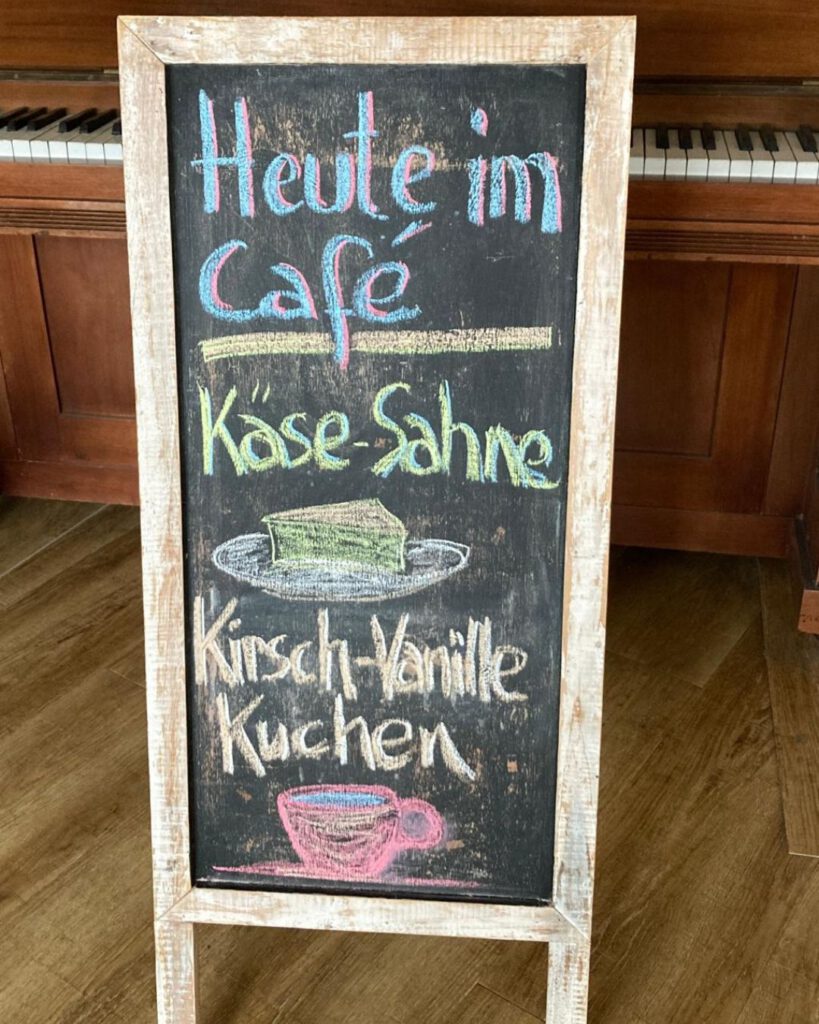 Heute im
Café
Käse-Sahne
Kirsch-Vanille
Kuchen